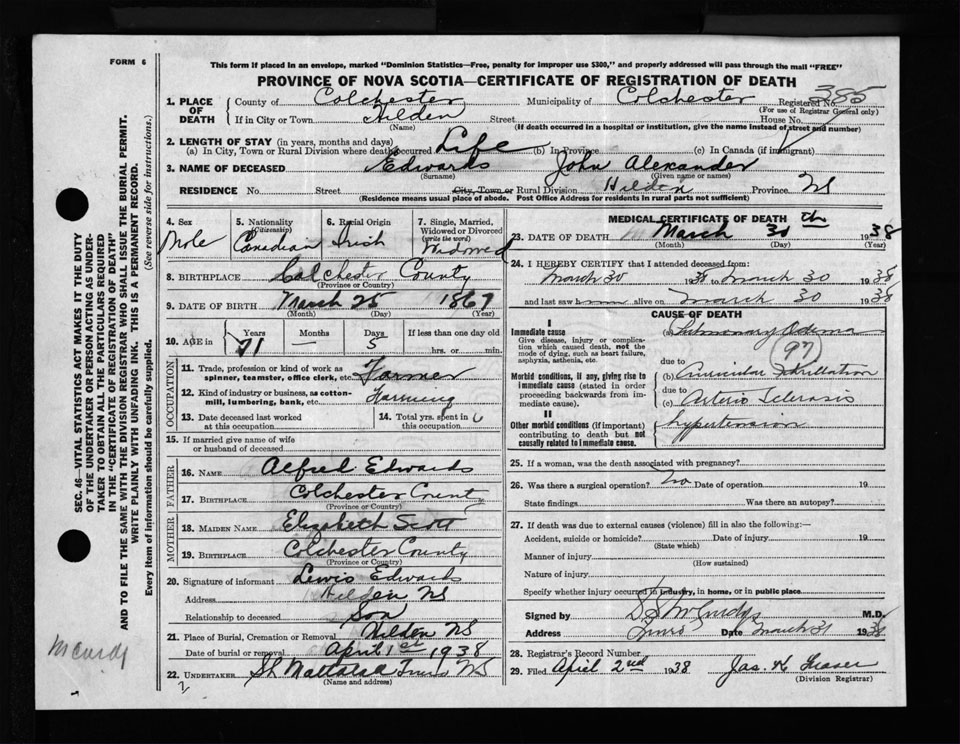 FORM 6
This form if placed in an envelope, marked "Dominion Statistics—Free, penalty for improper use $300," and properly addressed will pass through the mail "FREE"
PROVINCE OF NOVA SCOTIA—CERTIFICATE OF REGISTRATION OF DEATH
385
1. PLACE OF DEATH County of Colchester Municipality of Colchester Registered No.
(For use of Registrar General only)
If in City or Town Hilden Street House No.
(Name) (If death occurred in a hospital or institution, give the name instead of street and number)
2. LENGTH OF STAY (in years, months and days)
(a) In City, Town or Rural Division where death occurred Life (b) In Province (c) In Canada (if immigrant)
3. NAME OF DECEASED Edwards John Alexander
(Surname) (Given name or names)
RESIDENCE No. Street City, Town or Rural Division Hilden Province NS
(Residence means usual place of abode. Post Office Address for residents in rural parts not sufficient)
4. Sex Male
5. Nationality (Citizenship) Canadian
6. Racial Origin Irish
7. Single, Married, Widowed or Divorced (write the word) Widowed
8. BIRTHPLACE Colchester County
(Province or Country)
9. DATE OF BIRTH March 25 1867
(Month) (Day) (Year)
10. AGE in Years 71 Months — Days 5 If less than one day old hrs. or min.
OCCUPATION
11. Trade, profession or kind of work as spinner, teamster, office clerk, etc. Farmer
12. Kind of industry or business, as cotton-mill, lumbering, bank, etc. Farming
13. Date deceased last worked at this occupation
14. Total yrs. spent in this occupation
15. If married give name of wife or husband of deceased
FATHER
16. NAME Alfred Edwards
17. BIRTHPLACE Colchester County
(Province or Country)
MOTHER
18. MAIDEN NAME Elizabeth Scott
19. BIRTHPLACE Colchester County
(Province or Country)
20. Signature of informant Lewis Edwards
Address Hilden NS
Relationship to deceased Son
21. Place of Burial, Cremation or Removal Hilden NS
Date of burial or removal April 1st 1938
22. UNDERTAKER NS
(Name and address)
MEDICAL CERTIFICATE OF DEATH
23. DATE OF DEATH March 30th 1938
(Month) (Day) (Year)
24. I HEREBY CERTIFY that I attended deceased from:
March 30 1938 to March 30 1938
and last saw alive on March 30 1938
CAUSE OF DEATH
I
Immediate cause (a) Pulmonary Odema
Give disease, injury or complication which caused death, not the mode of dying, such as heart failure, asphyxia, asthenia, etc.
97
due to
Morbid conditions, if any, giving rise to immediate cause (stated in order proceeding backwards from immediate cause). (b)
due to
(c) Arterio Sclerosis
II
Other morbid conditions (if important) contributing to death but not causally related to immediate cause. Hypertension
25. If a woman, was the death associated with pregnancy?
26. Was there a surgical operation? No Date of operation 19
State findings Was there an autopsy?
27. If death was due to external causes (violence) fill in also the following:—
Accident, suicide or homicide? Date of injury 19
(State which)
Manner of injury
(How sustained)
Nature of injury
Specify whether injury occurred in industry, in home, or in public place
Signed by M.D.
Address Truro Date March 31 1938
28. Registrar's Record Number
29. Filed April 2nd 1938 Jas. K Fraser
(Division Registrar)
SEC. 46—VITAL STATISTICS ACT MAKES IT THE DUTY
OF THE UNDERTAKER OR PERSON ACTING AS UNDER-
TAKER TO OBTAIN ALL THE PARTICULARS REQUIRED
IN THE "CERTIFICATE OF REGISTRATION OF DEATH"
AND TO FILE THE SAME WITH THE DIVISION REGISTRAR WHO SHALL ISSUE THE BURIAL PERMIT.
WRITE PLAINLY WITH UNFADING INK. THIS IS A PERMANENT RECORD.
Every item of information should be carefully supplied. (See reverse side for instructions.)